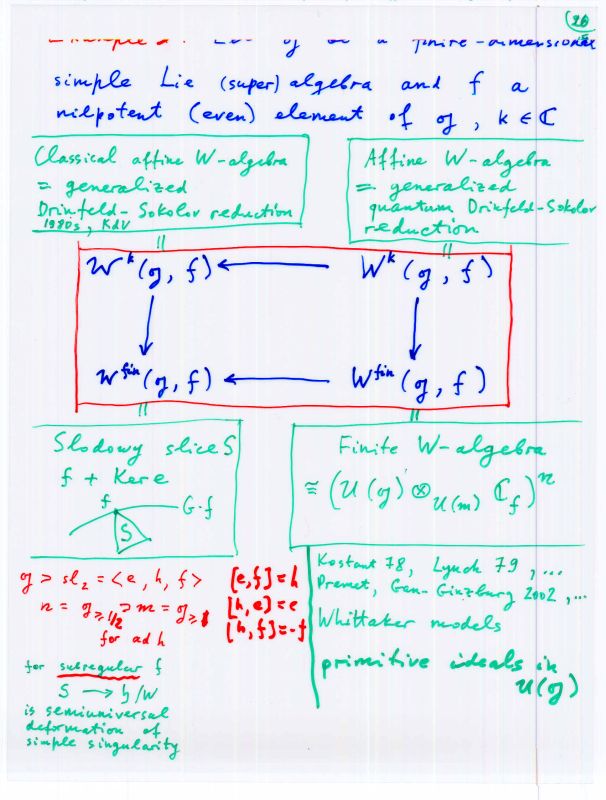 26
Example 2. Let g be a finite-dimensional
simple Lie (super)algebra and f a
nilpotent (even) element of g, k ∈ ℂ
Classical affine W-algebra
= generalized
Drinfeld-Sokolov reduction
1980s, KdV
Affine W-algebra
= generalized
quantum Drinfeld-Sokolov
reduction
𝒲ᵏ(g, f) ← Wᵏ(g, f)
𝒲ᶠⁱⁿ(g, f) ← Wᶠⁱⁿ(g, f)
Slodowy slice S
f + Ker e
f
G·f
S
Finite W-algebra
≅ (U(g) ⊗_{U(m)} ℂ_f)ⁿ
g > sl₂ = <e, h, f> [e,f]=h
n = g_{≥1/2} ⊃ m = g_{≥1} [h,e]=e
for ad h [h,f]=-f
for subregular f
S → h/W
is semiuniversal
deformation of
simple singularity
Kostant 78, Lynch 79, ...
Premet, Gan-Ginzburg 2002, ...
Whittaker models
primitive ideals in
U(g)